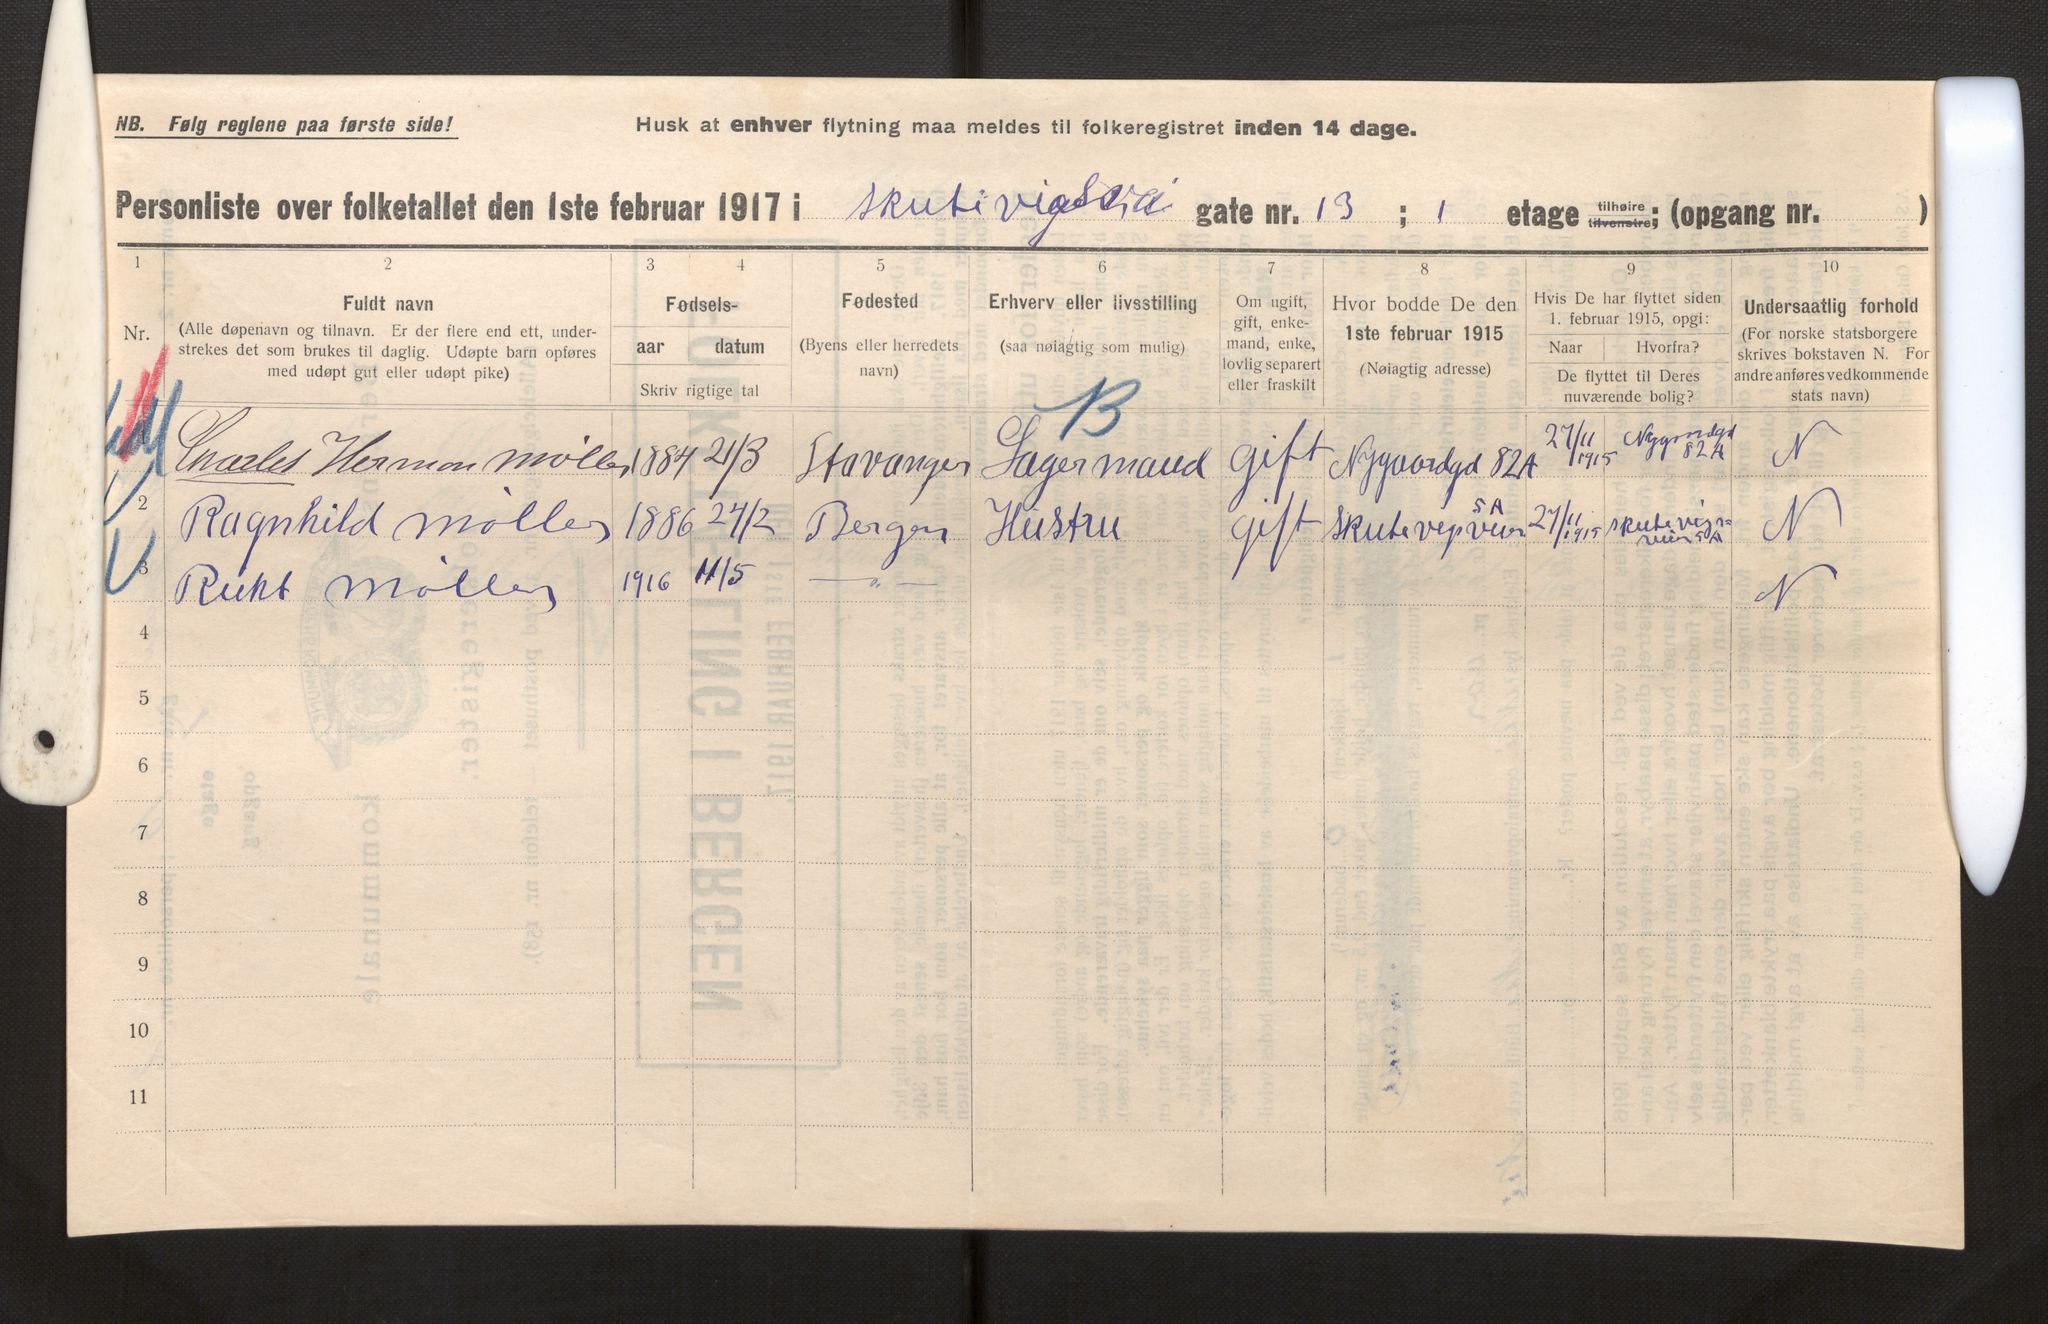 NB. Følg reglene paa første side!
Husk at enhver flytning maa meldes til folkeregistret inden 14 dage.
Personliste over folketallet den 1ste februar 1917 i Skutevigsvei gate nr. 13 ; 1 etage tilhøire tilvenstre; (opgang nr. )
1 2 3 4 5 6 7 8 9 10
Nr.
Fuldt navn
(Alle døpenavn og tilnavn. Er der flere end ett, under-
strekes det som brukes til daglig. Udøpte barn opføres
med udøpt gut eller udøpt pike)
Fødsels-
aar datum
Skriv rigtige tal
Fødested
(Byens eller herredets
navn)
Erhverv eller livsstilling
(saa nøiagtig som mulig)
Om ugift,
gift, enke-
mand, enke,
lovlig separert
eller fraskilt
Hvor bodde De den
1ste februar 1915
(Nøiagtig adresse)
Hvis De har flyttet siden
1. februar 1915, opgi:
Naar Hvorfra?
De flyttet til Deres
nuværende bolig?
Undersaatlig forhold
(For norske statsborgere
skrives bokstaven N. For
andre anføres vedkommende
stats navn)
B
1 Charles Herman Møller 1884 21/3 Stavanger Lagermand gift Nygaardgd 82A 27/11 1915 Nygaardgd 82A N
2 Ragnhild Møller 1886 24/2 Bergen Hustru gift Skutevigsveien 5A 27/11 1915 Skutevigsveien 5A N
3 Møller 1916 11/5 — " — N
4
5
6
7
8
9
10
11